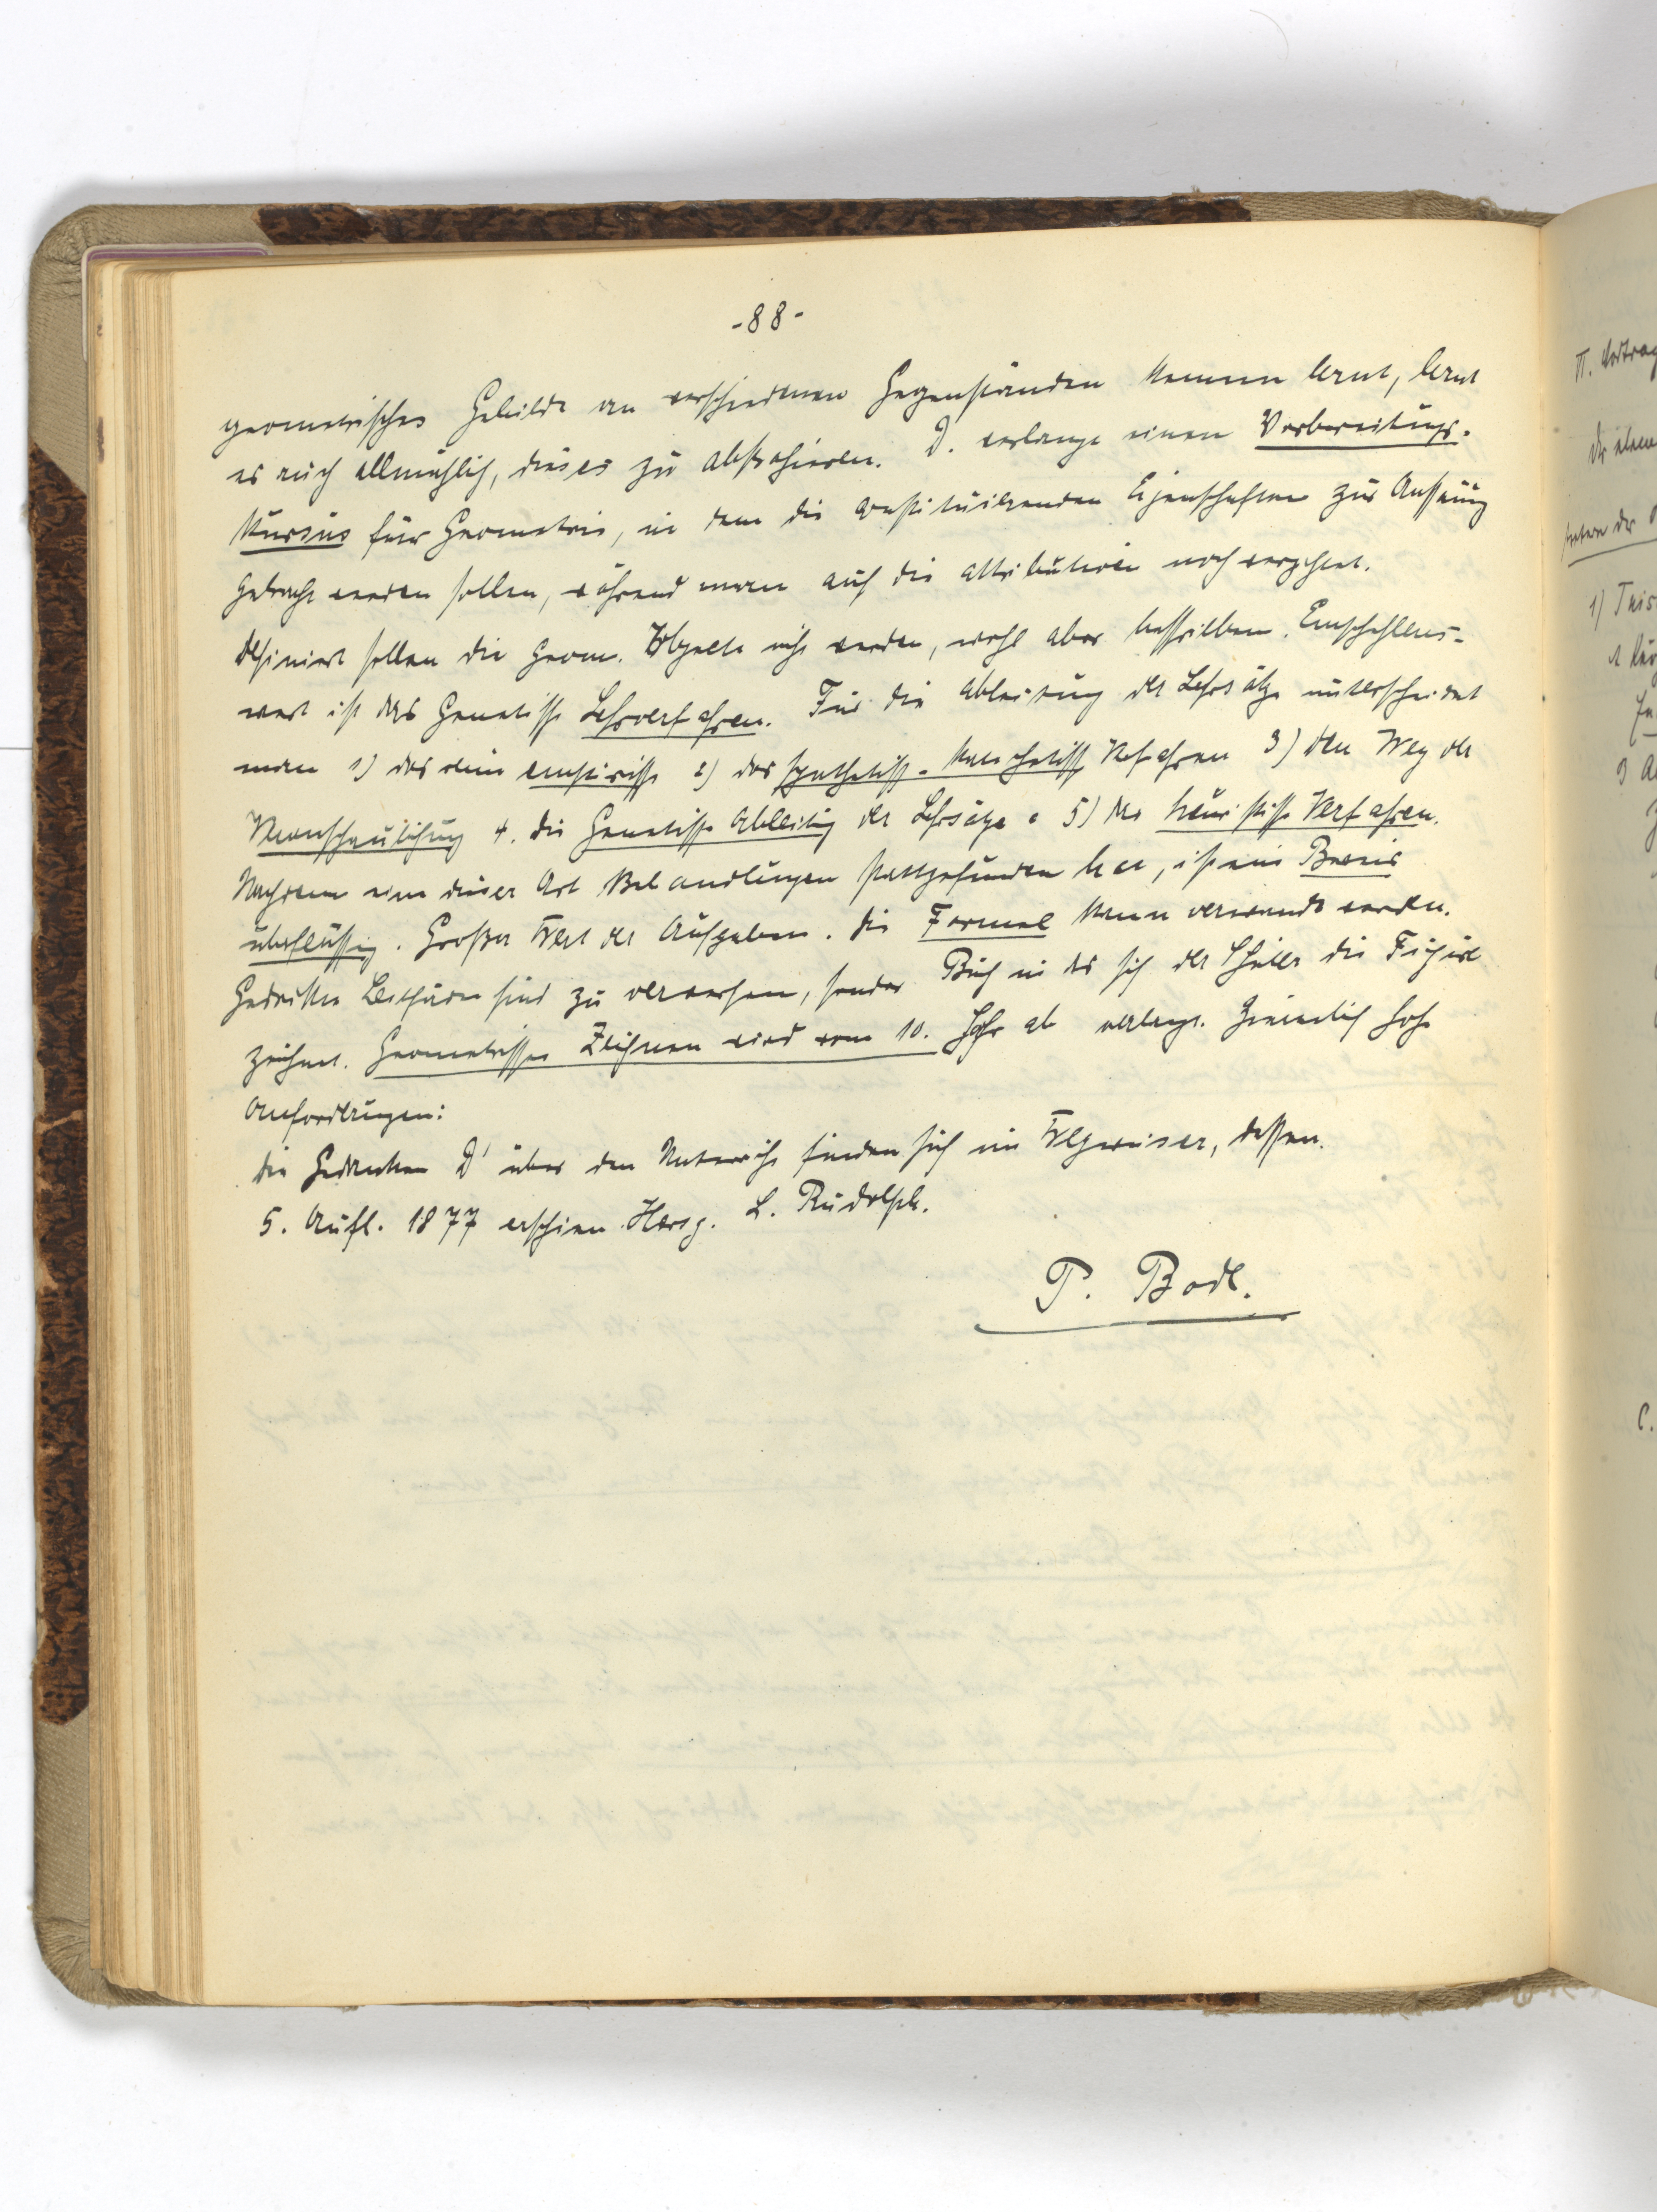 -88-
geometrisches Gebilde an verschiedenen Gegenständen kennen lernt, lernt
es auch allmählich, dieses zu abstrahieren. D. verlangt einen Vorbereitungs-
kursus für Geometrie, in dem die konstituierenden Eigenschaften zur Auffassung
gebracht werden sollen, während man auf die attributiven noch verzichtet.
Definiert sollen die geom. Objecte nicht werden, wohl aber beschrieben. Empfehlens-
wert ist das Genetische Lehrverfahren. Für die Ableitung der Lehrsätze unterscheidet
man 1) das rein empirische 2) das synthetisch- Verfahren 3) den Weg der
Veranschaulichung 4. die Genetische Ableitung der Lehrsätze 5) das heuristische Verfahren.
Nachdem eine dieser Art Behandlungen stattgefunden hat, ist ein Beweis
überflüssig. Großer Wert der Aufgaben. Die Formel kann verwandt werden.
Gedruckte Leitfäden sind zu verwerfen, sonder Buch in das sich der Schüler die Figur
zeichnet. Geometrisches Zeichnen wird vom 10. Jahr ab verlangt. Ziemlich hohe
Anforderungen:
Die Gedanken D' über den Unterricht finden sich im Wegweiser, dessen
5. Aufl. 1877 erschien. Hersg. L. Rudolph.
P. Bodl.
II. Vortrag
1)
C.